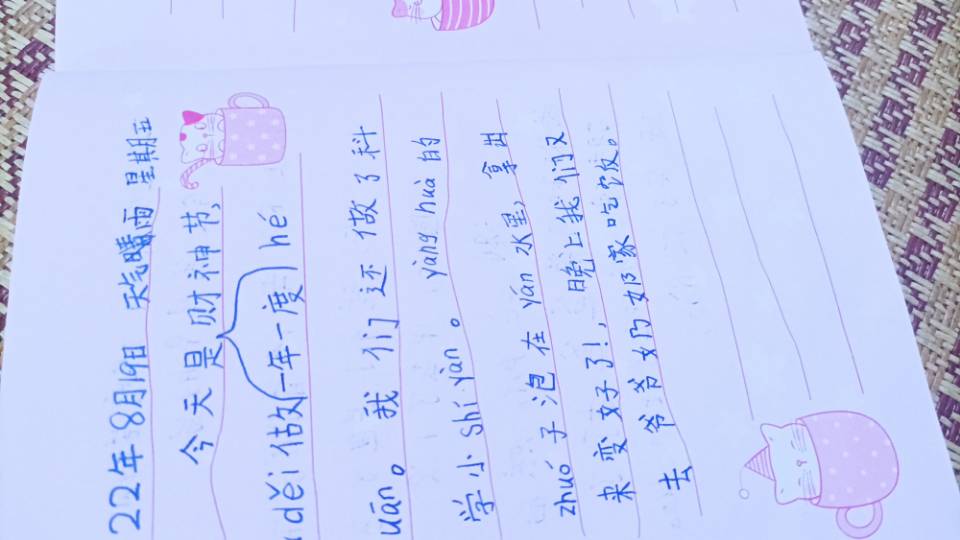 22年8月19日 天气晴雨 星期五
今天是财神节,
děi做(一年一度)hé
uān。我们还做了科
学小shí yàn。yàng huà的
zhuó子泡在yán水里,拿出
来变好了!,晚上我们又
去爷爷奶奶家吃饭。